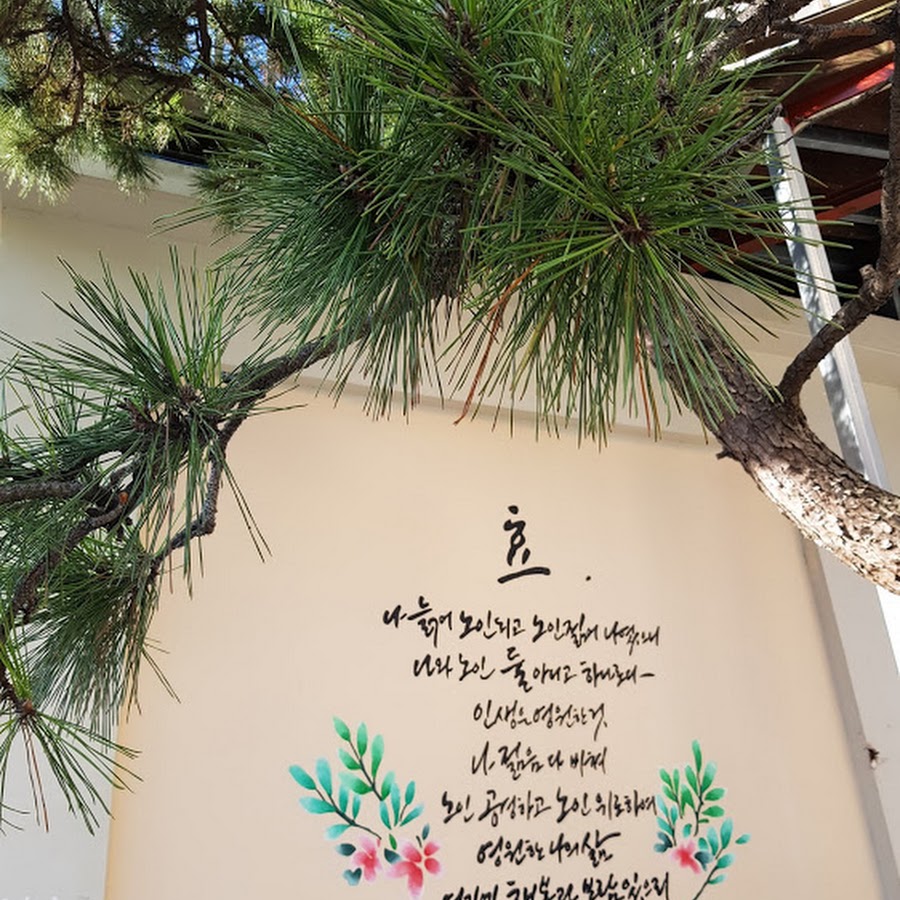 효.
나 늙어 노인되고 노인젊어 나였으니
나와 노인 둘 아니고 하나로다
인생은 영원한 것
나 젊음 다 바쳐
노인 공경하고 노인 위로하여
영원한 나의 삶
행복과 보람있으리